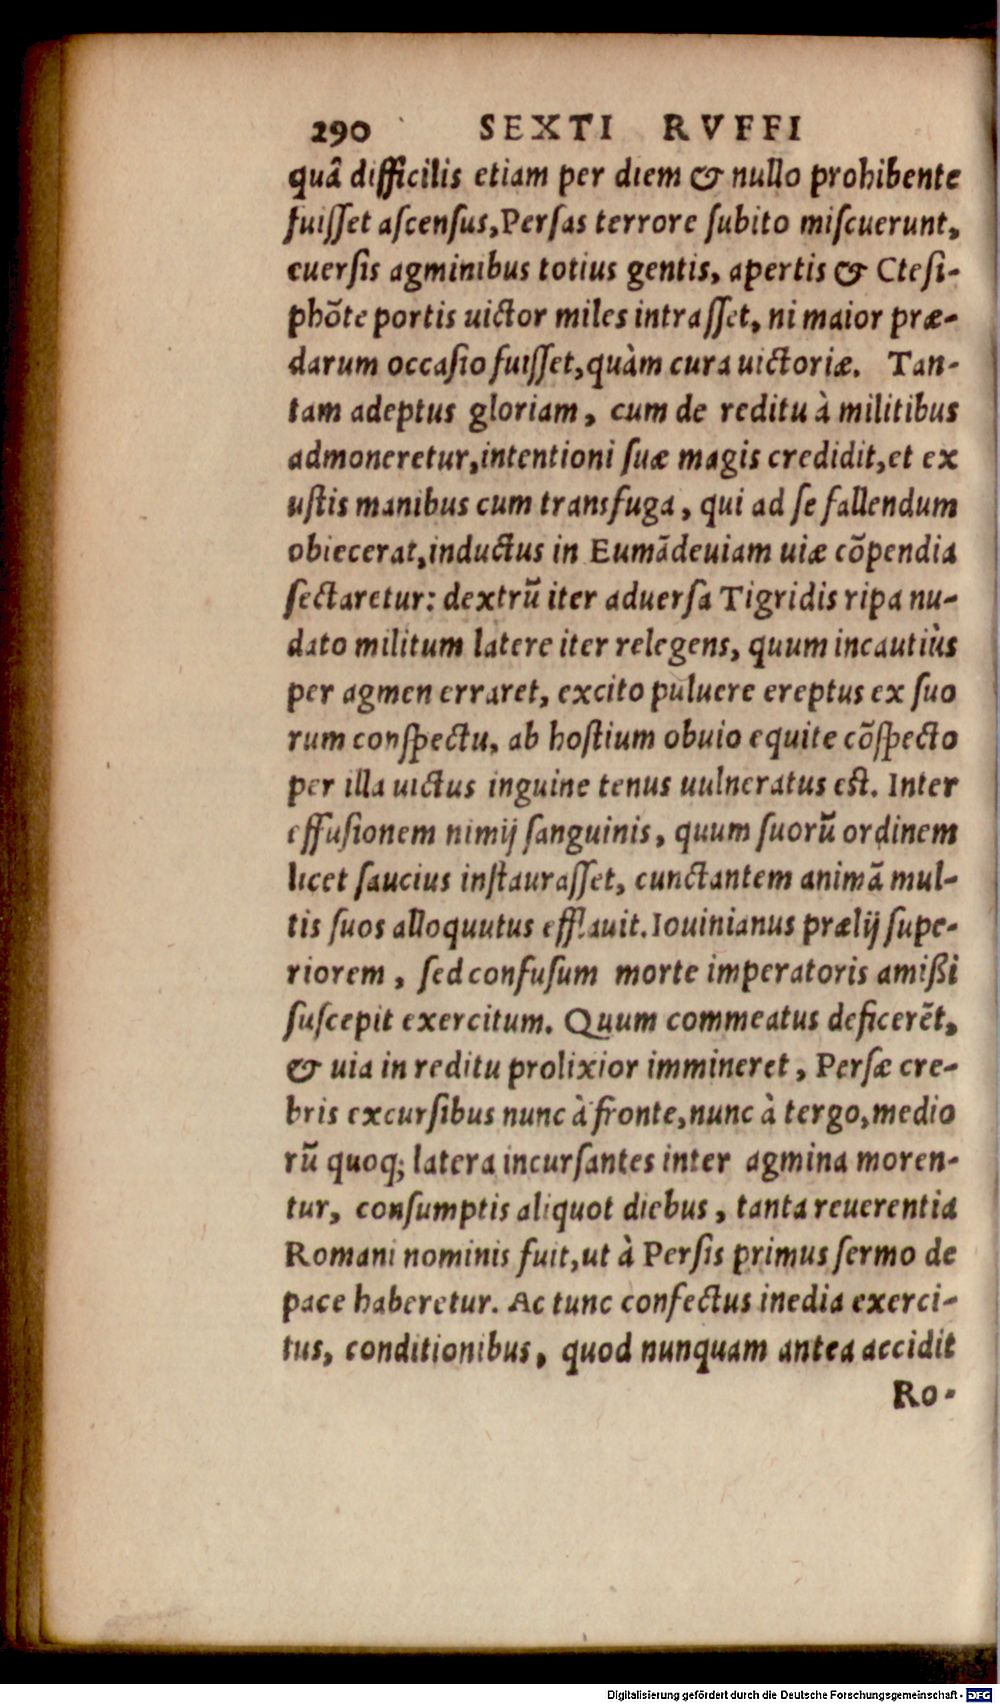 290 SEXTI RVFFI
quā difficilis etiam per diem & nullo prohibente
fuiſſet aſcenſus, Perſas terrore ſubito miſcuerunt,
euerſis agminibus totius gentis, apertis & Cteſi-
phōte portis uictor miles intraſſet, ni maior præ-
darum occaſio fuiſſet, quàm cura uictoriæ. Tan-
tam adeptus gloriam, cum de reditu à militibus
admoneretur, intentioni ſuæ magis credidit, et ex
uſtis manibus cum transfuga, qui ad ſe fallendum
obiecerat, inductus in Eumādeuiam uiæ cōpendia
ſectaretur: dextrū iter aduerſa Tigridis ripa nu-
dato militum latere iter relegens, quum incautiùs
per agmen erraret, excito puluere ereptus ex ſuo
rum conſpectu, ab hoſtium obuio equite cōſpecto
per illa uictus inguine tenus uulneratus eſt. Inter
effuſionem nimij ſanguinis, quum ſuorū ordinem
licet ſaucius inſtauraſſet, cunctantem animā mul-
tis ſuos alloquutus efflauit. Iouinianus prælij ſupe-
riorem, ſed confuſum morte imperatoris amißi
ſuſcepit exercitum. Quum commeatus deficerēt,
& uia in reditu prolixior immineret, Perſæ cre-
bris excurſibus nunc à fronte, nunc à tergo, medio
rū quoq; latera incurſantes inter agmina moren-
tur, conſumptis aliquot diebus, tanta reuerentia
Romani nominis fuit, ut à Perſis primus ſermo de
pace haberetur. Ac tunc confectus inedia exerci-
tus, conditionibus, quod nunquam antea accidit
Ro-
Digitalisierung gefördert durch die Deutsche Forschungsgemeinschaft - DFG